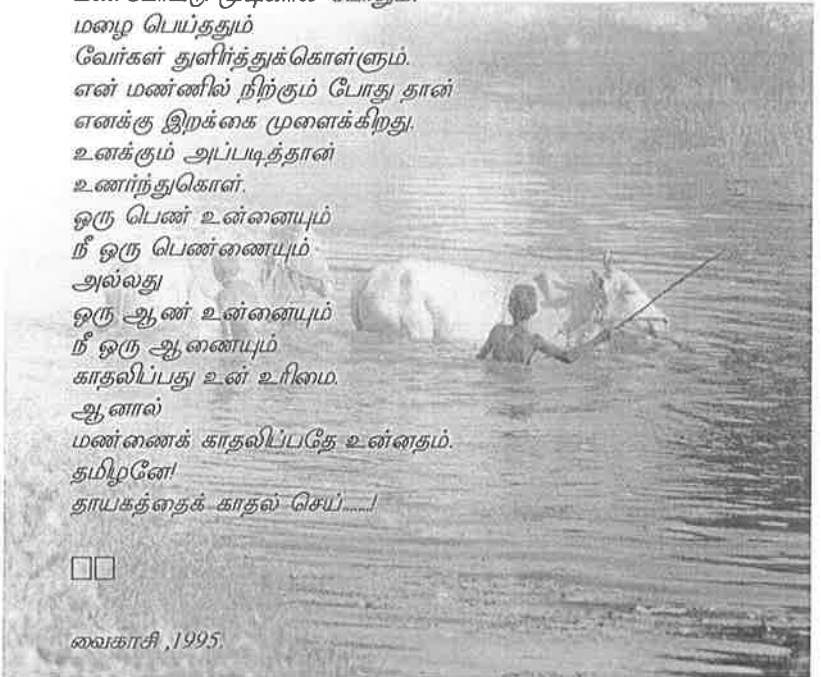 மழை பெய்ததும்
வேர்கள் துளிர்த்துக்கொள்ளும்.
என் மண்ணில் நிற்கும் போது தான்
எனக்கு இறக்கை முளைக்கிறது.
உனக்கும் அப்படித்தான்
உணர்ந்துகொள்.
ஒரு பெண் உன்னையும்
நீ ஒரு பெண்ணையும்
அல்லது
ஒரு ஆண் உன்னையும்
நீ ஒரு ஆணையும்
காதலிப்பது உன் உரிமை.
ஆனால்
மண்ணைக் காதலிப்பதே உன்னதம்.
தமிழனே!
தாயகத்தைக் காதல் செய்.......!
வைகாசி ,1995.